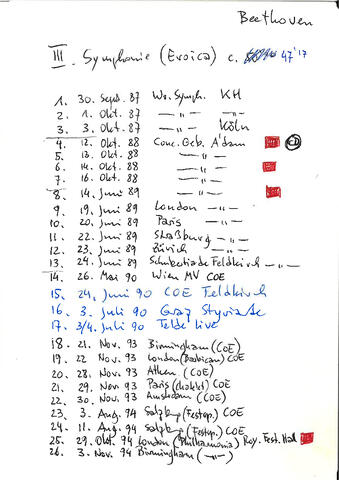 Beethoven
III. Symphonie (Eroica) c. 47'17
1. 30. Sept. 87 Wr. Symph. KH
2. 1. Okt. 87 —„— —„—
3. 3. Okt. 87 —„— Köln
4. 12. Okt. 88 Conc. Geb. A'dam CD
5. 13. Okt. 88 —„—
6. 14. Okt. 88 —„—
7. 16. Okt. 88 —„—
8. 14. Juni 89 —„—
9. 19. Juni 89 London —„—
10. 20. Juni 89 Paris —„—
11. 22. Juni 89 Straßburg —„—
12. 23. Juni 89 Zürich —„—
13. 24. Juni 89 Schubertiade Feldkirch —„—
14. 26. Mai 90 Wien MV COE
15. 24. Juni 90 COE Feldkirch
16. 3. Juli 90 Graz Styriarte
17. 3/4. Juli 90 Teldec live
18. 21. Nov. 93 Birmingham (COE)
19. 22 Nov. 93 London (Barbican) COE
20. 28. Nov. 93 Athen (COE)
21. 29. Nov. 93 Paris (Chatelet) COE
22. 30. Nov. 93 Amsterdam (COE)
23. 3. Aug. 94 Salzburg (Festsp.) COE
24. 11. Aug. 94 Salzburg (Festsp.) COE
25. 29. Okt. 94 London (Philharmonia) Roy. Fest. Hall
26. 3. Nov. 94 Birmingham (—„—)